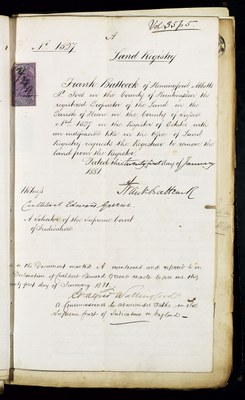 Vol 35 p 5
A
No 1527
Land Registry
Frank Battcock of Hemingford Abbotts
St Ives in the County of Huntingdon the
registered Proprietor of the Land in the
Parish of in the County of
No 1527 in the Register of Estates with
an indefeasible title in the Office of Land
Registry requests the Registrar to remove the
land from the Register.
Dated the twenty first day of January
1881
Frank Battcock
Witness
Cuthbert Edward
A Solicitor of the Supreme Court
of Judicature
is the Document marked A mentioned and referred to in
Declaration of Cuthbert Edward made before me this
first day of January 1881.
A Commissioner to administer Oaths in the
Supreme Court of Judicature in England